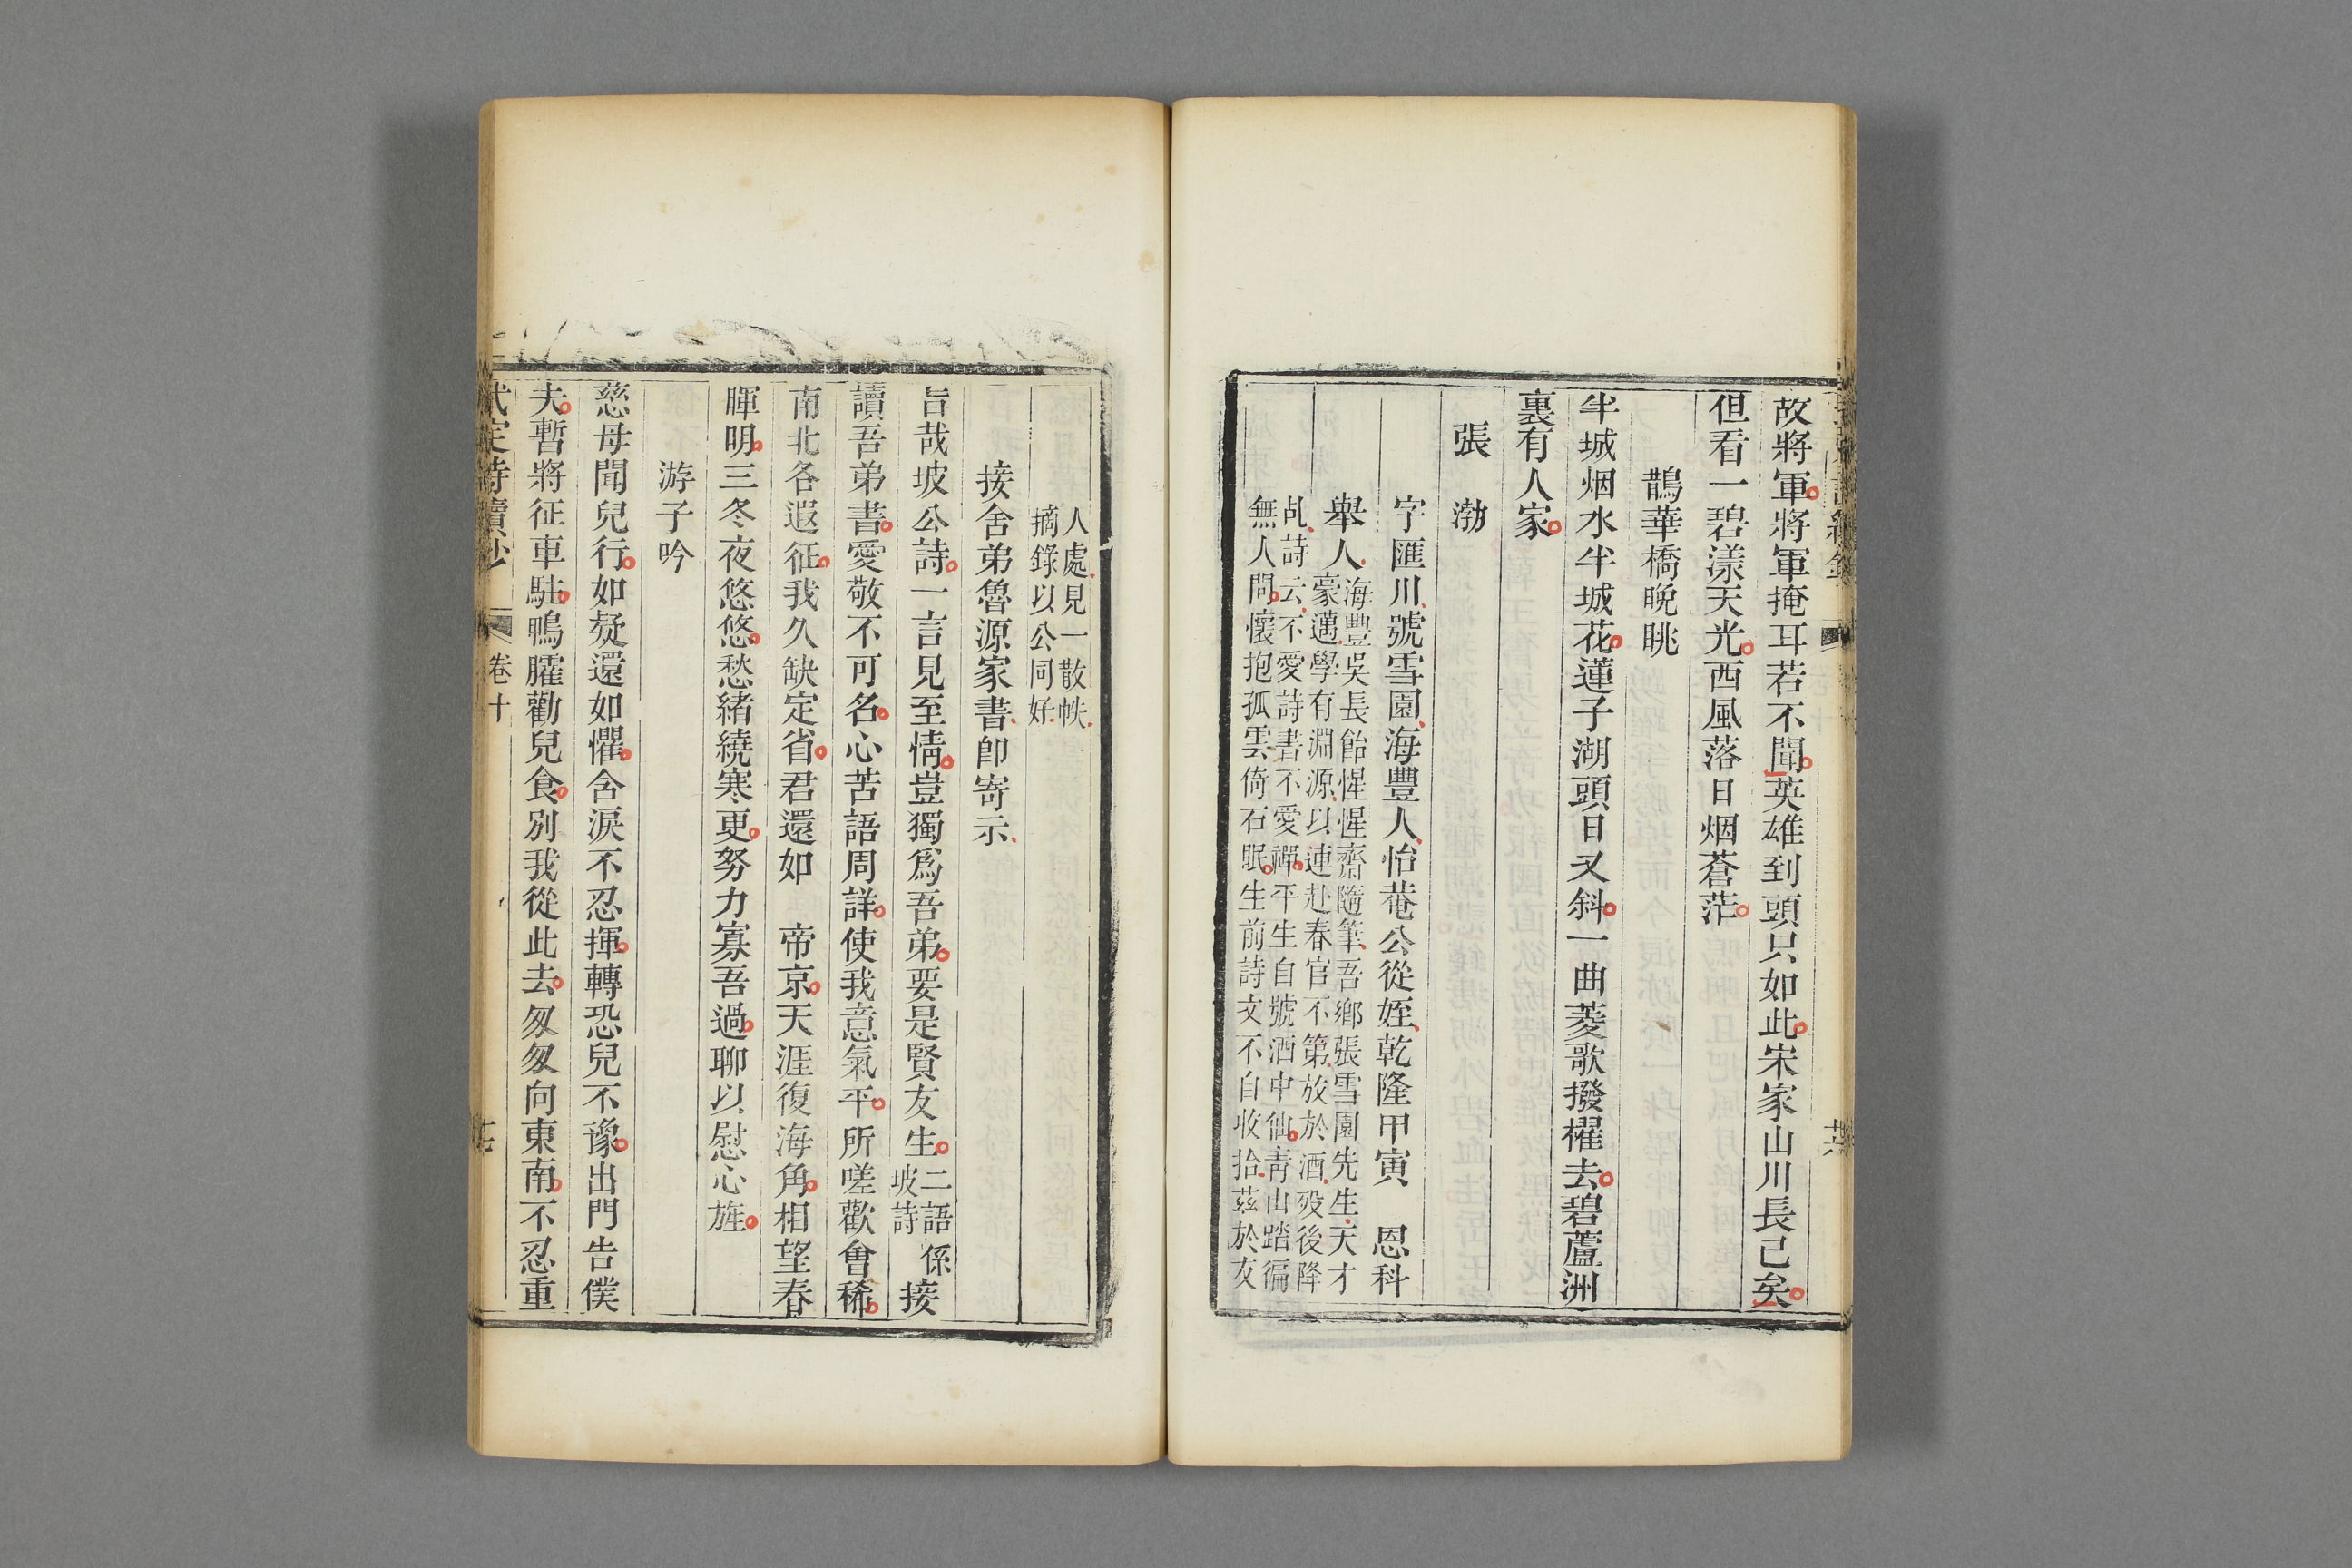 故將軍將軍掩耳若不聞英雄到頭只如此宋家山川長已矣
但看一碧漾天光西風落日烟蒼茫
鵲華橋晩眺
半城烟水半城花蓮子湖頭日又斜一曲菱歌撥櫂去碧蘆洲
裏有人家
張渤
字匯川號雪園海豐人怡菴公從姪乾隆甲寅 恩科
舉人
海豐吳長飴惺惺齋隨筆吾鄉張雪園先生天才
豪邁學有淵源以連赴春官不第放於酒歿後降
乩詩云不愛詩書不愛禪平生自號酒中仙靑山踏徧
無人問懷抱孤雲倚石眠生前詩文不自收拾茲於友
人處見一散帙
摘錄以公同好
接舍弟魯源家書卽寄示
旨哉坡公詩一言見至情豈獨爲吾弟要是賢友生
二語係
坡詩
接
讀吾弟書愛敬不可名心苦語周詳使我意氣平所嗟歡會稀
南北各遐征我久缺定省君還如 帝京天涯復海角相望春
暉明三冬夜悠悠愁緒繞寒更努力寡吾過聊以慰心旌
游子吟
慈母聞兒行如疑還如懼含淚不忍揮轉恐兒不豫出門告僕
夫暫將征車駐鴨臛勸兒食別我從此去匆匆向東南不忍重
武定詩續鈔
卷十